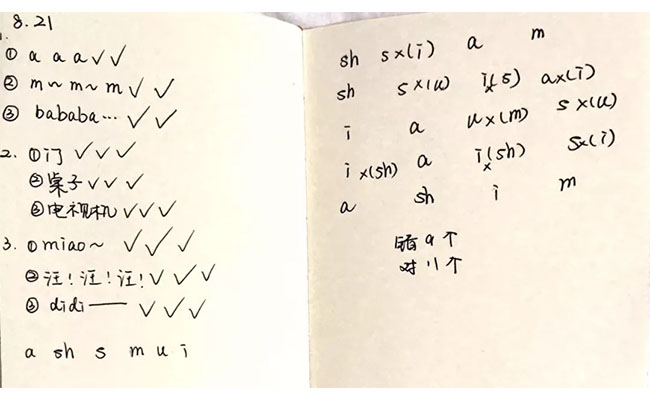 8.21
① a a a ✓✓
② m~m~m ✓✓
③ bababa… ✓✓
2. ①门 ✓✓✓
②桌子 ✓✓✓
③电视机 ✓✓✓
3. ①miao~ ✓✓✓
②汪!汪!汪! ✓✓✓
③ didi—— ✓✓✓
a sh s m u i
sh s×(i) a m
sh s×(u) i×(s) a×(i)
i a u×(m) s×(u)
i×(sh) a i×(sh) s×(i)
a sh i m
错9个
对11个